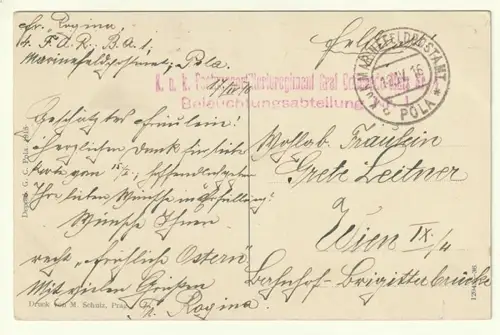 Fr. Rogina,
4. F.A.R., B.A.1,
Marinefeldpostamt, Pola.
17/IV 16
K. u. k. Festungsartillerieregiment Graf
Beleuchtungsabteilung Nr. 1
K.u.K. MARINEFELDPOSTAMT
IV. 16
* POLA *
Geschätztes Fräulein!
Herzlichen Dank für Karte vom 15/2;
Ihr lieben Wünsche in Erfüllung!
Wünsche Ihnen
recht "fröhliche Ostern"
Mit vielen Grüssen
Fr. Rogina.
Wohlgeb. Fräulein
Grete Leitner
Wien IX/4
Bahnhof-Brigittabrücke
Druck von M. Schulz, Prag